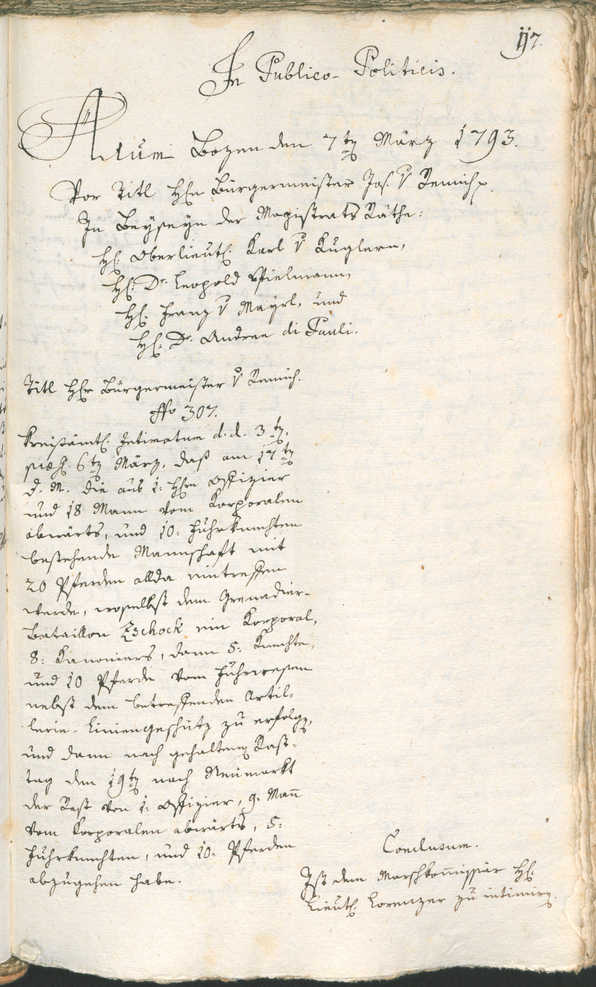 117.
In Publico-Politicis.
Actum Bozen den 7ten März 1793.
Vor Titl Hhrn Bürgermeister Jos. v Remich.
In Beyseyn der Magistrats Räthe:
Hh. Oberlieut. Karl v Kuglern,
Hh. Dr. Leopold Vielmann,
Hh. Franz v Mayrl, und
Hh. Dr. Andree di Pauli.
Titl Hhr Bürgermeister v Remich.
No 307.
Kreisämtl. Intimatum d.d. 3ten,
6ten März, daß am 17ten
d. M. die aus 1: Hhrn Offizier
und 18 Mann vom Korporalen
abwärts, und 10: Fuhrknechten
bestehende Mannschaft mit
20 Pferden allda eintreffen
werde, woselbst dem Grenadier-
Bataillon Zschock ein Korporal,
8: Kanoniers, dann 5: Knechte,
und 10 Pferde vom Fuhrwesen
nebst dem betreffenden Artil-
lerie-Liniengeschütz zu erfolgen,
und dann nach gehaltenem Rast-
tag den 19ten nach Neumarkt
der Rest von 1: Offizier, 9: Mann
vom Korporalen abwärts, 5:
Fuhrknechten, und 10: Pferden
abzugehen habe.
Conclusum.
Ist dem Marschkommissär Hh.
Lieut. Lorenzer zu intimiren.